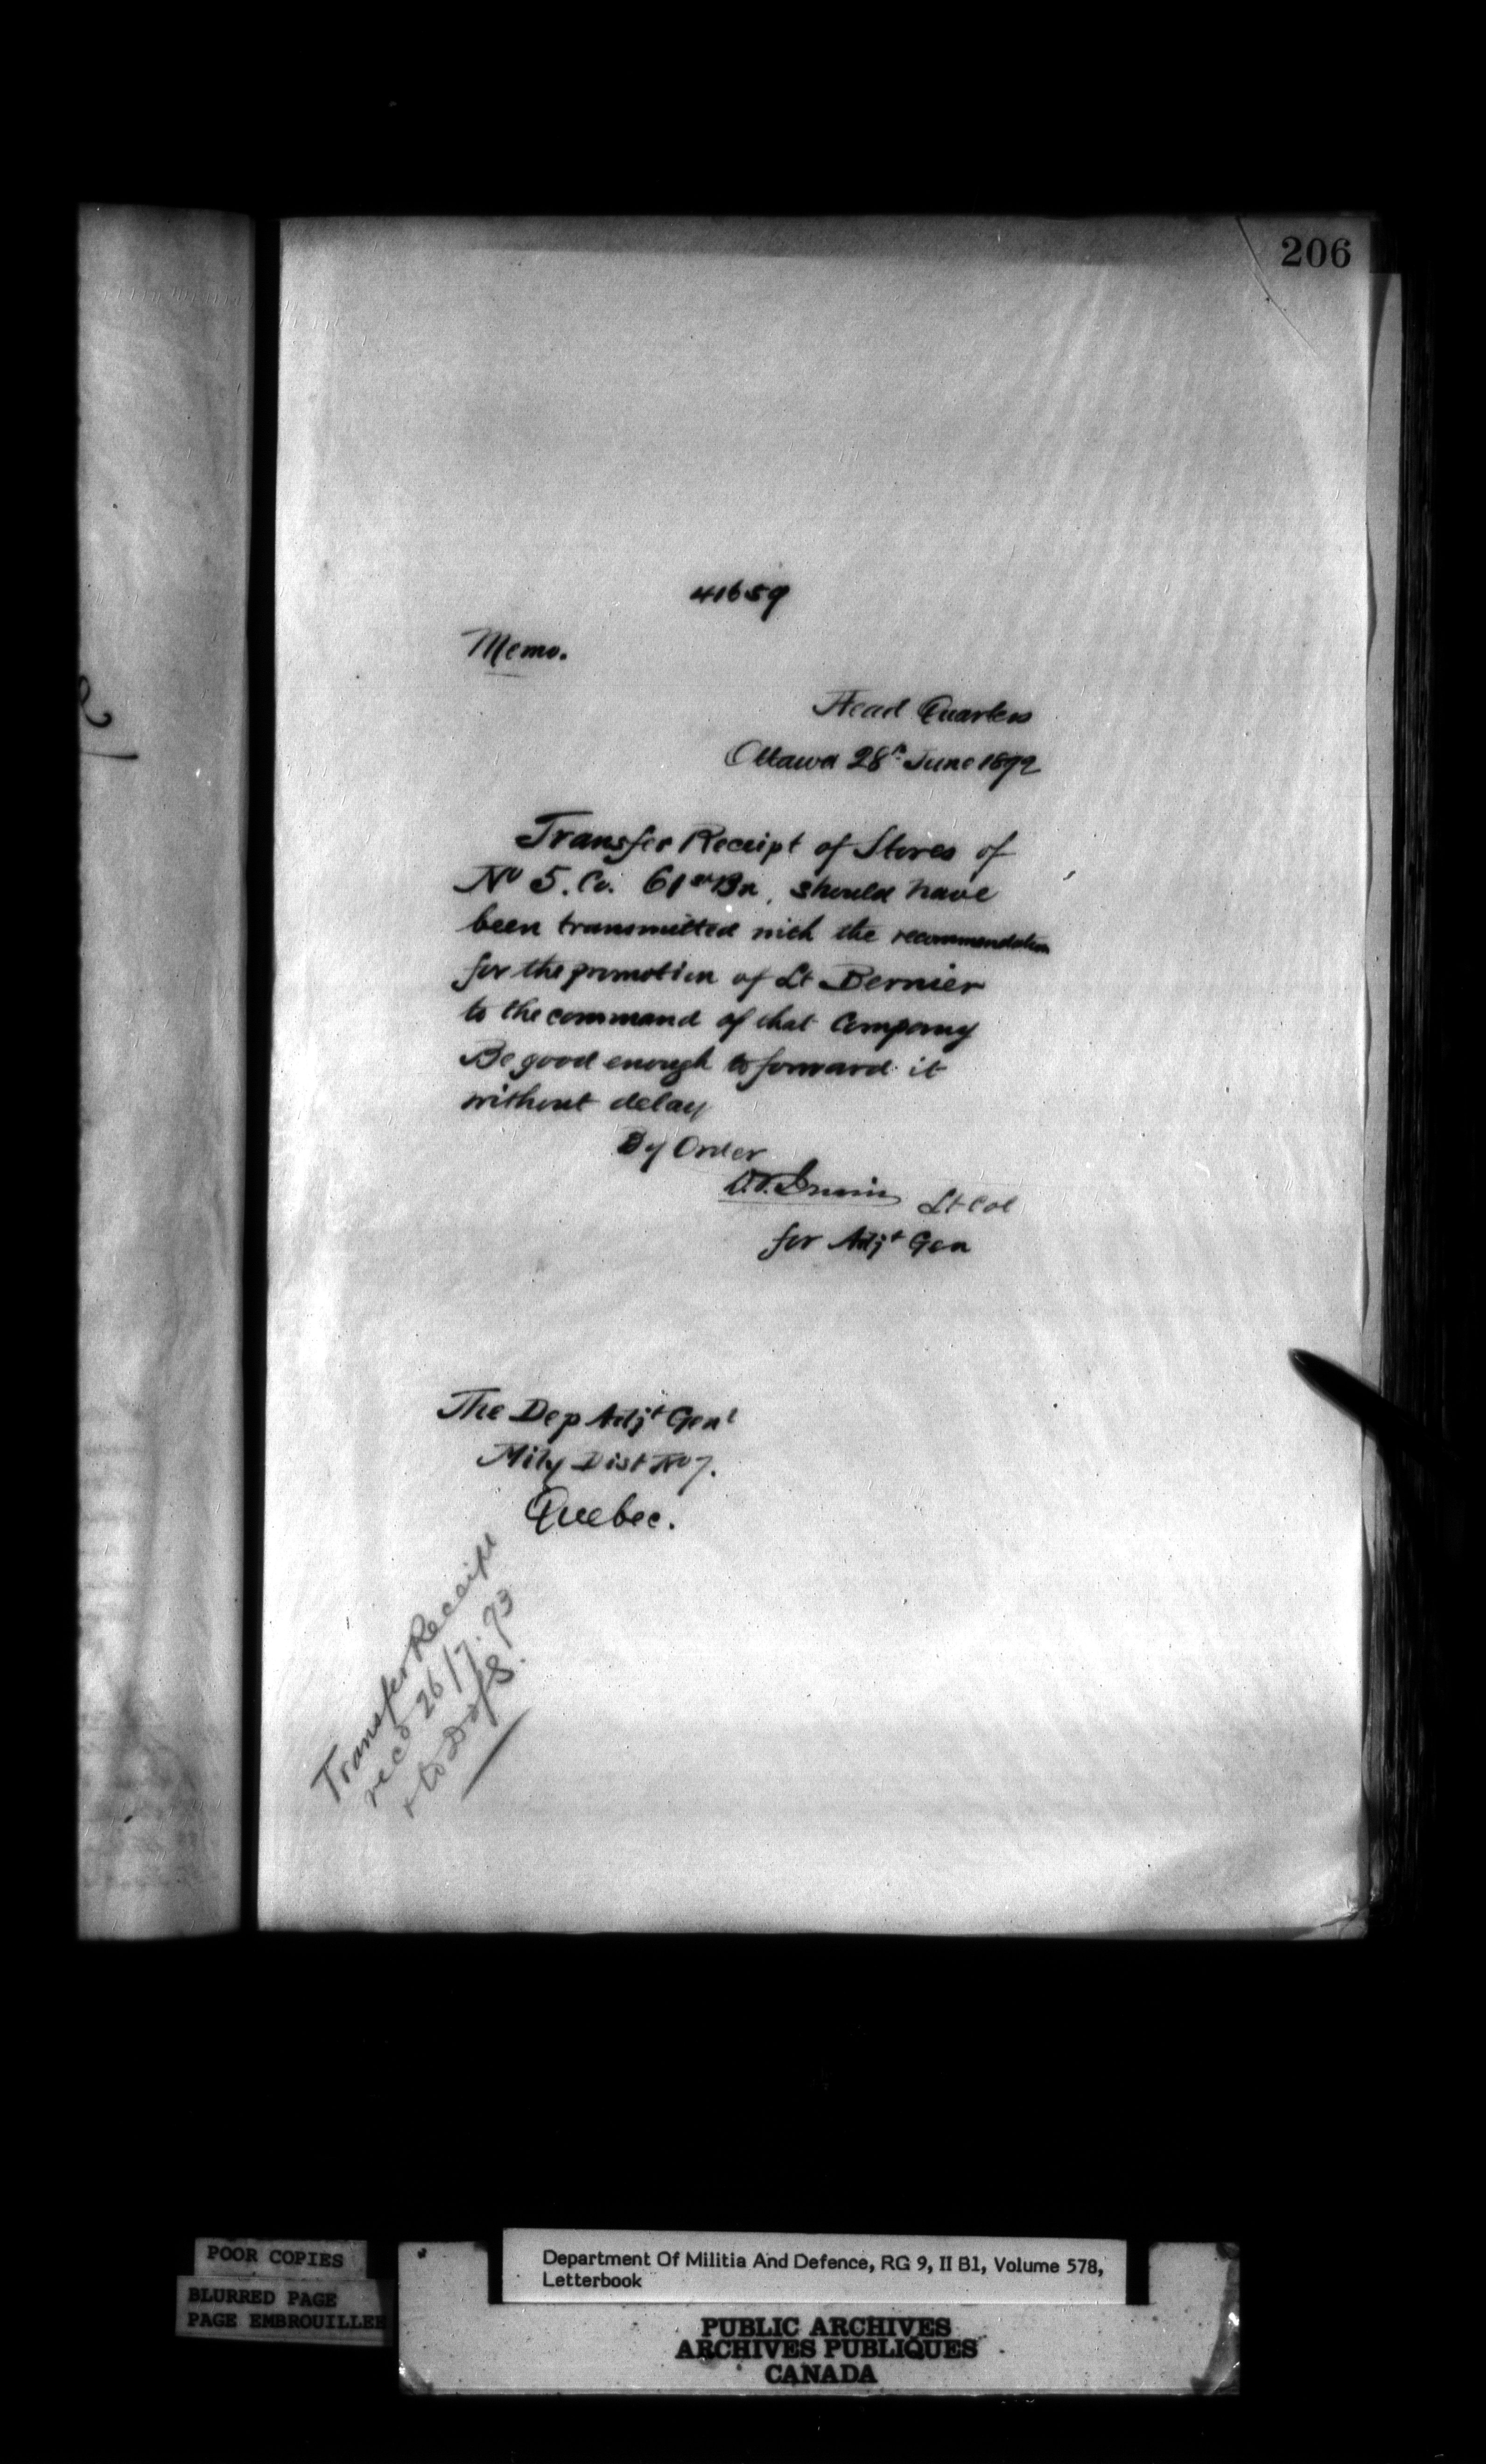 206
41659
Memo.
Head Quarters
Ottawa 28th June 1892
Transfer Receipt of Stores of
No 5. Co. 61st Bn, should have
been transmitted with the recommendation
for the promotion of Lt Bernier
to the command of that Company
Be good enough to forward it
without delay
By Order
Lt Col
for Adjt Gen
The Dep Adjt Genl
Mily Dist No 7.
Quebec.
Transfer Receipt
recd 26/7.93
+ to D of S.
POOR COPIES
BLURRED PAGE
PAGE EMBROUILLEE
Department Of Militia And Defence, RG 9, II B1, Volume 578,
Letterbook
PUBLIC ARCHIVES
ARCHIVES PUBLIQUES
CANADA